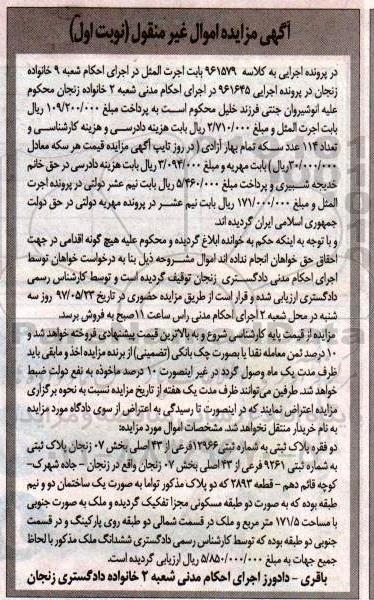 آگهی مزایده اموال غیر منقول (نوبت اول)
در پرونده اجرایی به کلاسه ۹۶۱۵۷۹ بابت اجرت المثل در اجرای احکام شعبه ۹ خانواده
زنجان در پرونده اجرایی ۹۶۱۶۴۵ در اجرای احکام مدنی شعبه ۲ خانواده زنجان محکوم
علیه انوشیروان جنتی فرزند خلیل محکوم است به پرداخت مبلغ ۱۰۹/۲۰۰/۰۰۰ ریال
بابت اجرت المثل و مبلغ ۲/۷۱۰/۰۰۰ ریال بابت هزینه دادرسی و هزینه کارشناسی و
تعداد ۱۱۴ عدد سکه تمام بهار آزادی ( در روز تایپ آگهی مزایده قیمت هر سکه معادل
۳۰/۰۰۰/۰۰۰ ریال ) بابت مهریه و مبلغ ۳/۰۹۴/۰۰۰ ریال بابت هزینه دادرسی در حق خانم
خدیجه شبیری و پرداخت مبلغ ۵/۴۶۰/۰۰۰ ریال بابت نیم عشر دولتی در پرونده اجرت
المثل و مبلغ ۱۷۱/۰۰۰/۰۰۰ ریال بابت نیم عشر در پرونده مهریه دولتی در حق دولت
جمهوری اسلامی ایران گردیده اند.
و با توجه به اینکه حکم به خوانده ابلاغ گردیده و محکوم علیه هیچ گونه اقدامی در جهت
احقاق حق خواهان انجام نداده اند اموال مشروحه ذیل بنا به درخواست خواهان توسط
اجرای احکام مدنی دادگستری زنجان توقیف گردیده است و توسط کارشناس رسمی
دادگستری ارزیابی شده و قرار است از طریق مزایده حضوری در تاریخ ۹۷/۰۵/۲۳ روز سه
شنبه در محل شعبه ۲ اجرای احکام مدنی راس ساعت ۱۱صبح به فروش برسد.
مزایده از قیمت پایه کارشناسی شروع و به بالاترین قیمت پیشنهادی فروخته خواهد شد و
۱۰ درصد ثمن معامله نقدا یا بصورت چک بانکی (تضمینی) از برنده مزایده اخذ و مابقی باید
ظرف مدت یک ماه وصول گردد در غیر اینصورت ۱۰ درصد ماخوذه به نفع دولت ضبط
خواهد شد. طرفین می‌توانند ظرف مدت یک هفته از تاریخ مزایده نسبت به نحوه برگزاری
مزایده اعتراض نمایند که در اینصورت تا رسیدگی به اعتراض از سوی دادگاه مورد مزایده
به نام خریدار منتقل نخواهد شد. مشخصات اموال مورد مزایده:
دو فقره پلاک ثبتی به شماره ثبتی ۱۲۹۶۶فرعی از ۴۳ اصلی بخش ۰۷ زنجان پلاک ثبتی
به شماره ثبتی ۹۲۶۱ فرعی از ۴۳ اصلی بخش ۰۷ زنجان واقع در زنجان - جاده شهرک-
کوچه قائم دهم - قطعه ۲۸۹۳ که دو پلاک مذکور تواما به صورت یک ساختمان دو و نیم
طبقه بوده که به صورت دو طبقه مسکونی مجزا تفکیک گردیده و ملک به صورت جنوبی
با مساحت ۱۷۱/۵ متر مربع و ملک در قسمت شمالی دو طبقه روی پارکینگ و در قسمت
جنوبی دو طبقه بوده که توسط کارشناس رسمی دادگستری ششدانگ ملک مذکور با لحاظ
جمیع جهات به مبلغ ۵/۸۵۰/۰۰۰/۰۰۰ ریال ارزیابی گردیده است.
باقری - دادورز اجرای احکام مدنی شعبه ۲ خانواده دادگستری زنجان